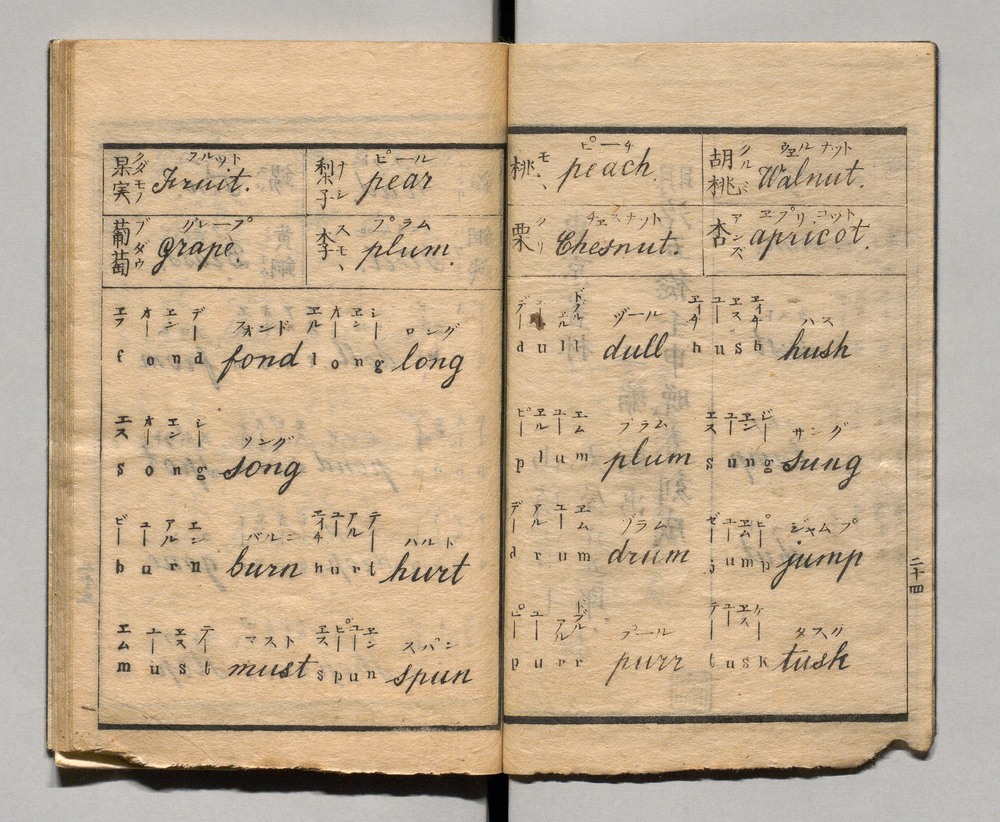 果実 クダモノ フルット Fruit. 梨子 ナシ ピール pear
葡萄 ブダウ グレープ grape. 李 スモヽ プラム plum.
ヱフ オー ヱン デー フォンド ヱル オー ヱン ジー ロング
f o n d fond l o n g long
エス オー エン ジー ソング
s o n g song
ビー ユー アル エン バルン エイチ ユー アル テー ハルト
b u r n burn h u r t hurt
エム ユー ヱス テイ マスト ヱス ピー ユー ヱン スパン
m u s t must s p u n spun
桃 モヽ ピーチ peach. 胡桃 クルミ ウヱルナット Walnut.
栗 クリ チェムナット Chesnut. 杏 アンズ ヱプリコット apricot.
デー ドブル ヱル ヅール ヱイチ ユー ヱス ヱイチ ハス
d u l l dull h u s h hush
ピー ヱル ユー ヱム プラム ヱス ユー ヱン ジー サング
p l u m plum s u n g sung
デー アル ユー ヱム ヅラム ゼー ユー ヱム ピー ジャムプ
d r u m drum j u m p jump
ピー ユー ドブル アル プール テー ユー ヱス ケー タスク
p u r r purr t u s k tusk
二十四